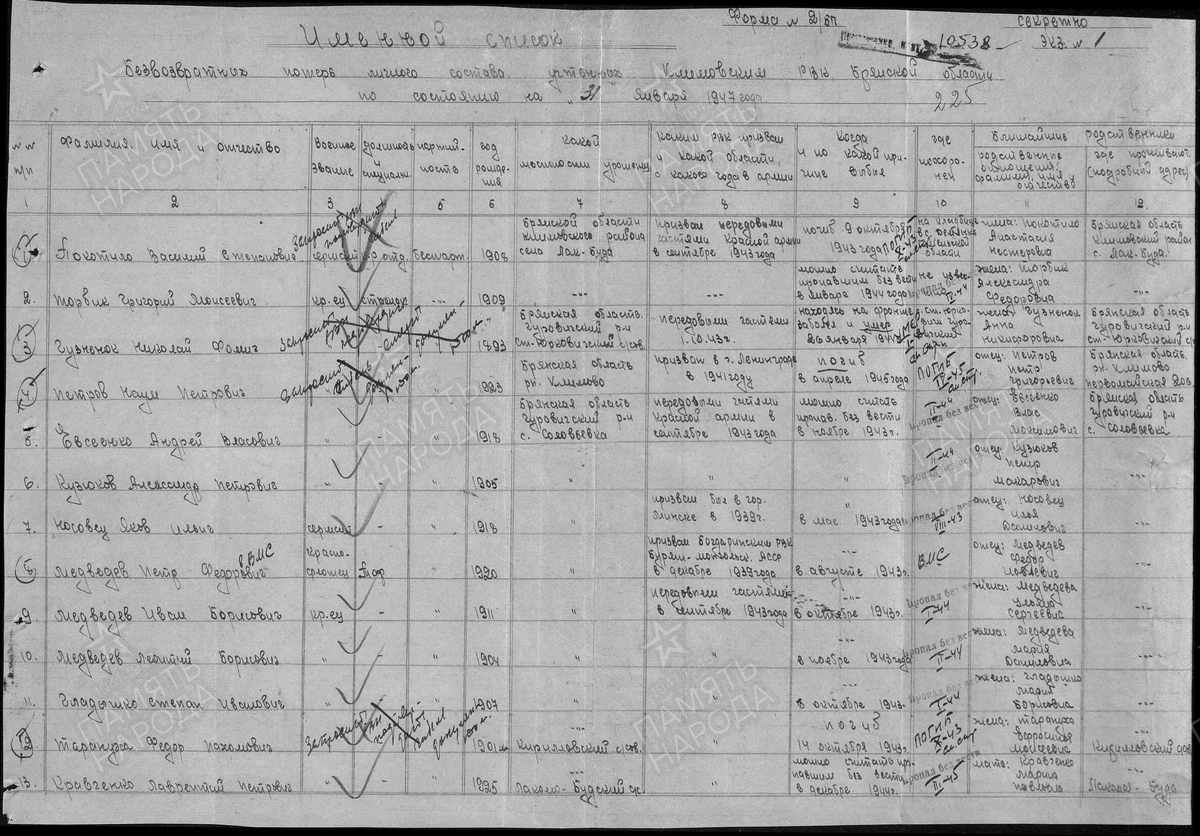 Форма № 2/БП
секретно
10538
Экз. № 1
Именной список
безвозвратных потерь личного состава учтенных Климовским РВК Брянской области
по состоянию на "31" января 1947 года.
225
№№ п/п
Фамилия, имя и отчество
Военное звание
должность и специальн.
партий-ность
год рождения
какой местности уроженец
каким РВК призван и какой области, с какого года в армии
когда и по какой причине выбыл
где похоронен
Ближайшие родственники
родственные отношения, фамилия, имя и отчество
где проживают (подробный адрес)
1 2 3 5 6 7 8 9 10 11 12
1. Покотило Василий Степанович сержант к-р отд. беспарт. 1908
Брянской области Климовского района села Лак-Буда
призван передовыми частями Красной армии в сентябре 1943 года
погиб 9 октября 1943 года
жена: Покотило Анастасия Нестеровна
Брянская область Климовский район с. Лак. Буда
2. Торвик Григорий Моисеевич кр-ец стрелок -"- 1909 -"- -"-
можно считать пропавшим без вести в январе 1944 года
не известно
жена: Торвик Александра Федоровна -"-
3. Гузненок Николай Фомич 1893
Брянская область, Чуровичский р-н ст-Юрковичский с/сов.
передовыми частями 1.10.43 г.
находясь на фронте заболел и умер 26 января 1944 г.
жена: Гузненок Анна Никифоровна
Брянская область Чуровичский р-н ст-Юрковичский с/сов
4. Петров Наум Петрович 1923
Брянская область рн. Климово
призван в г. Ленинграде в 1941 году
погиб в апреле 1945 года
ПОГИБ IV-45
отец: Петров Петр Григорьевич
Брянская область рн. Климово Первомайская
5. Евсеенко Андрей Власович " - " 1918
Брянская область Чуровичский р-н с. Соловьевка
передовыми частями Красной армии в сентябре 1943 года
можно считать пропав. без вести в ноябре 1943 г.
Пропал без вести II-44
отец: Евсеенко Влас Максимович
Брянская область Чуровичский р-н с. Соловьевка
6. Кузюков Александр Петрович " - " 1905 " " "
Пропал без вести II-44
отец: Кузюков Петр Макарович -"-
7. Носовец Яков Ильич сержант - " 1918 "
призван был в гор. Минске в 1939 г.
в мае 1943 года
Пропал без вести VIII-43
отец: Носовец Илья Данилович -"-
8. Медведев Петр Федорович в ВМС
краснофлотец " 1920 "
призван Богдаринским РВК Бурят-монгольск. Асср в декабре 1939 года
-"- в августе 1943 г.
ВМС
отец: Медведев Федор Иовлевич -"-
9. Медведев Иван Борисович кр-ец - " 1911 "
передовыми частями в сентябре 1943 года
-"- в октябре 1943 г.
Пропал без вести I-44
жена: Медведева Ульяна Сергеевна -"-
10. Медведев Леонтий Борисович " - " 1904 " "
-"- в ноябре 1943 года
Пропал без вести II-44
жена: Медведева Мария Даниловна -"-
11. Гладышко Степан Иванович " - " 1907 " "
-"- в октябре 1943 г.
Пропал без вести I-44
жена: Гладышко Мария Борисовна -"-
12. Тарануха Федор Пахомович Запросить 1901
Кирилловский с/сов. "
погиб 14 октября 1943 г.
ПОГИБ X-43
жена: Тарануха Моисеевна
Кирилловский с/сов
13. Кравченко Лаврентий Петрович " - " 1925
-"- Лакомо-Будский с/с "
можно считать пропавшим без вести в декабре 1944 г.
Пропал без вести III-45
мать: Кравченко Мария Павловна
Лакомо-Буда
ПАМЯТЬ НАРОДА